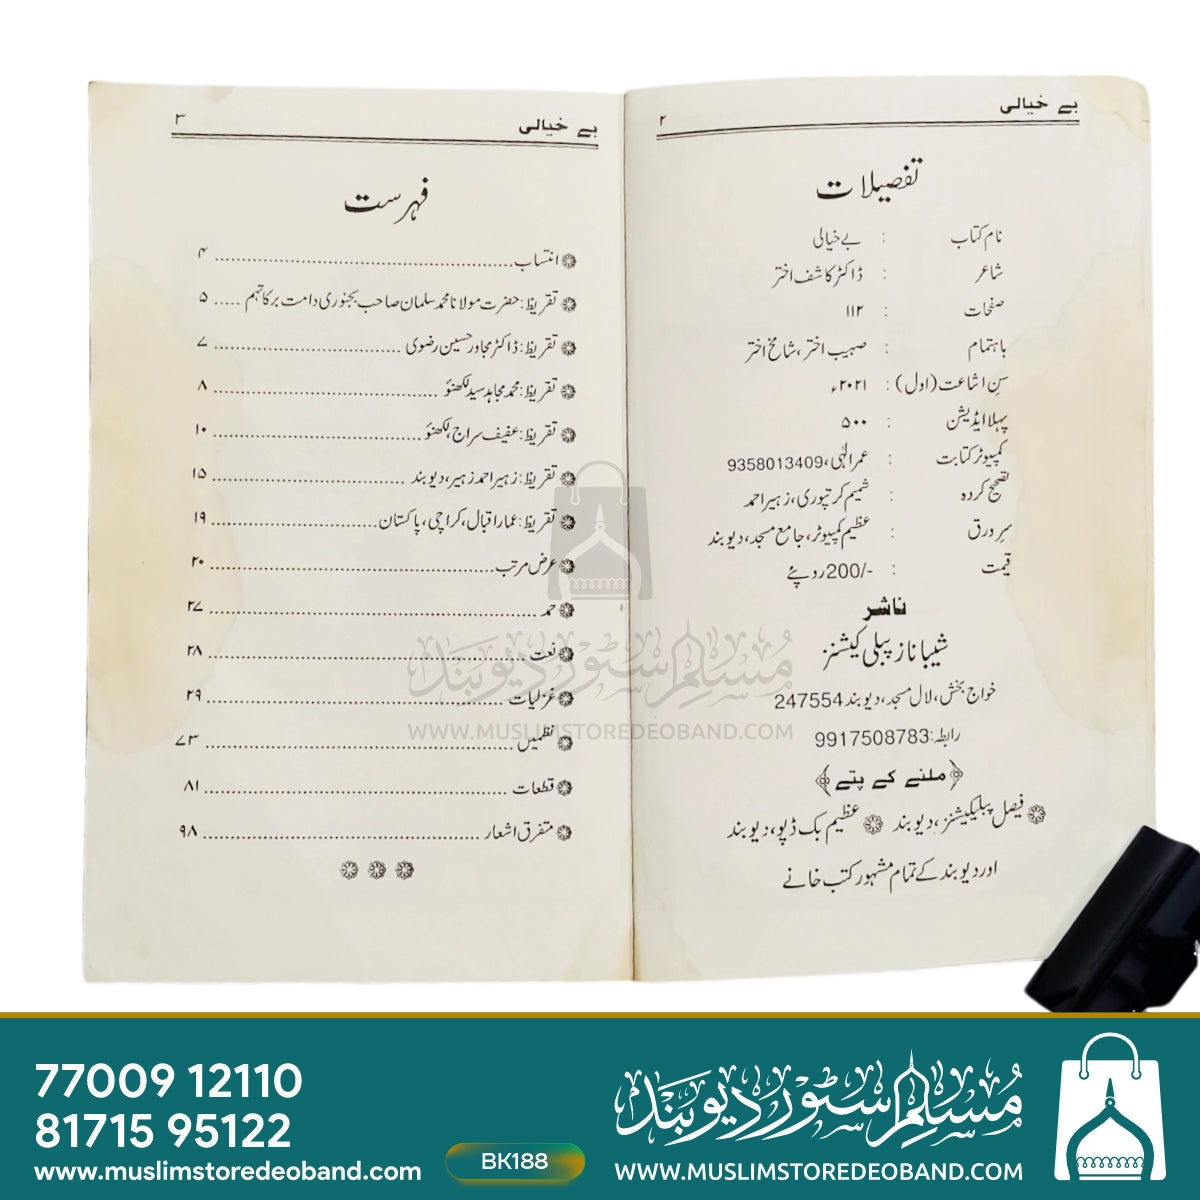 بے خیالی ۲
تفصیلات
نام کتاب : بے خیالی
شاعر : ڈاکٹر کاشف اختر
صفحات : ۱۱۲
باہتمام : صہیب اختر، شامخ اختر
سن اشاعت (اول) : ۲۰۲۱ء
پہلا ایڈیشن : ۵۰۰
کمپیوٹر کتابت : عمر الٰہی، 9358013409
تصحیح کردہ : شمیم کرتپوری، زہیر احمد
سر ورق : عظیم کمپیوٹر، جامع مسجد، دیوبند
قیمت : 200/- روپئے
ناشر
شیبا ناز پبلی کیشنز
خواج بخش، لال مسجد، دیوبند 247554
رابطہ: 9917508783
ملنے کے پتے
فیصل پبلیکیشنز، دیوبند عظیم بک ڈپو، دیوبند
اور دیوبند کے تمام مشہور کتب خانے
بے خیالی ۳
فہرست
انتساب ........ ۴
تقریظ: حضرت مولانا محمد سلمان صاحب بجنوری دامت برکاتہم ..... ۵
تقریظ: ڈاکٹر مجاور حسین رضوی ........ ۷
تقریظ: محمد مجاہد سید لکھنؤ ........ ۸
تقریظ: عفیف سراج، لکھنؤ ........ ۱۰
تقریظ: زہیر احمد زہیر، دیوبند ........ ۱۵
تقریظ: عمار اقبال، کراچی، پاکستان ........ ۱۹
عرض مرتب ........ ۲۰
حمد ........ ۲۷
نعت ........ ۲۸
غزلیات ........ ۲۹
نظمیں ........ ۷۳
قطعات ........ ۸۱
متفرق اشعار ........ ۹۸
مسلم سٹور دیوبند
WWW.MUSLIMSTOREDEOBAND.COM
77009 12110
81715 95122
www.muslimstoredeoband.com
BK188
مسلم سٹور دیوبند
WWW.MUSLIMSTOREDEOBAND.COM